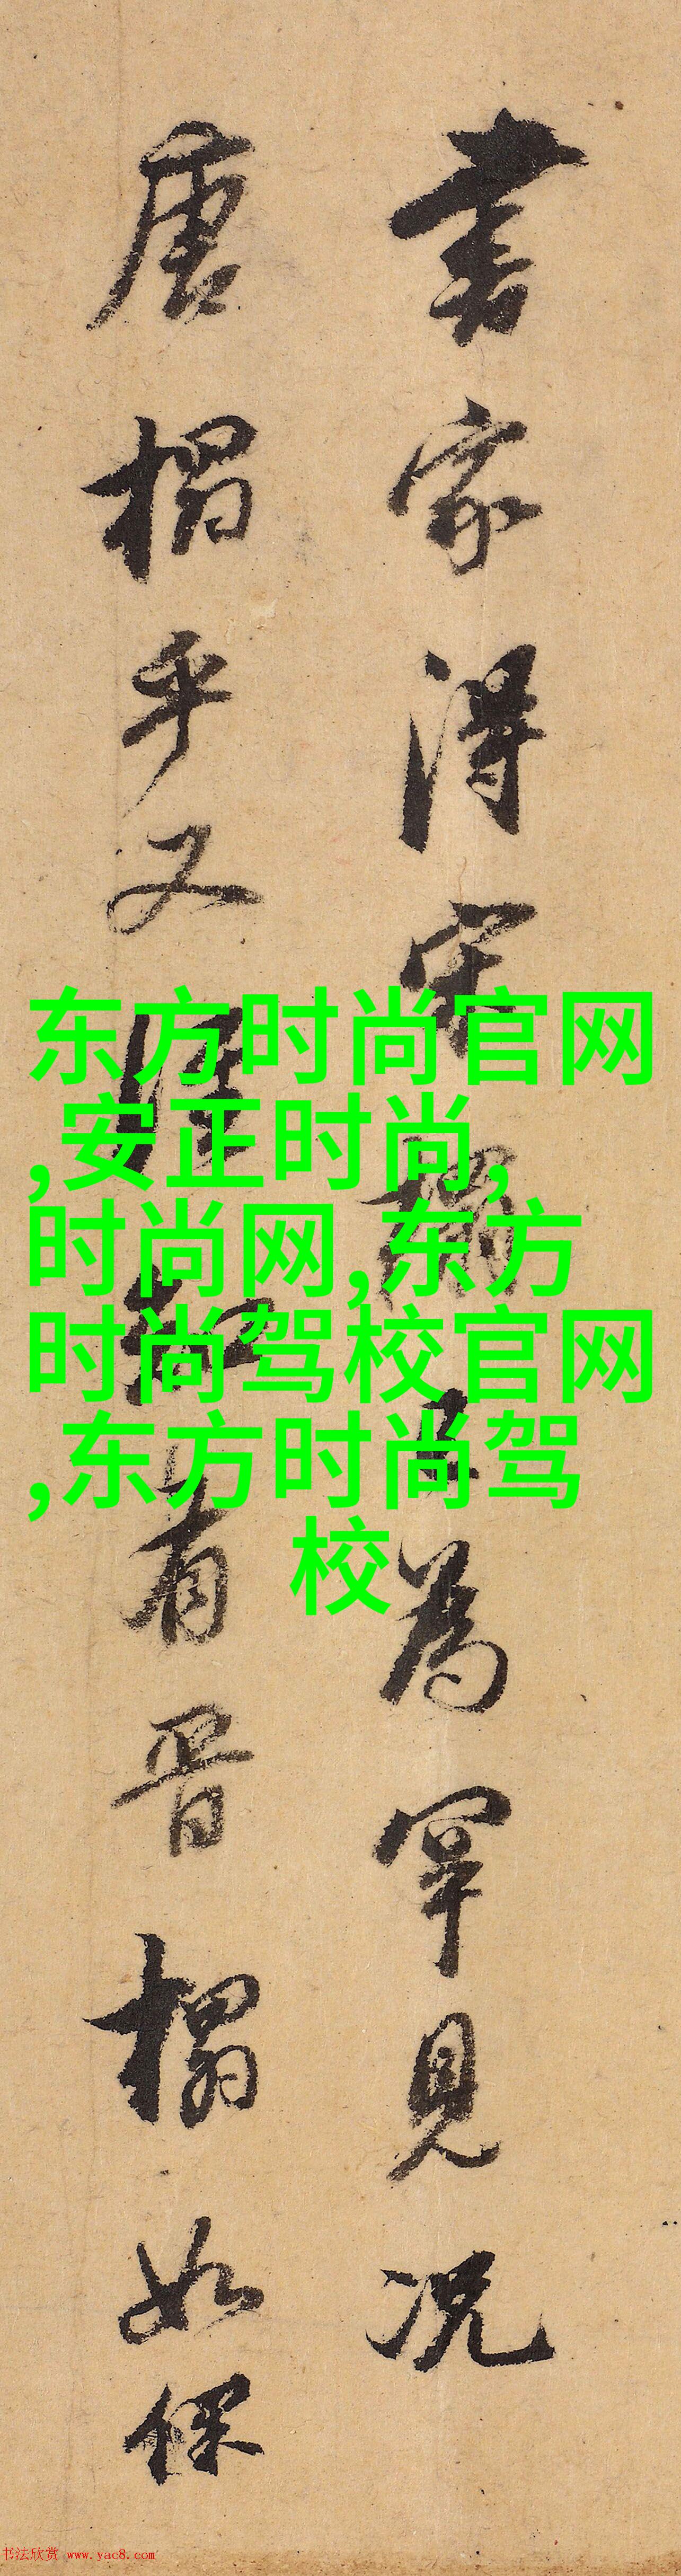 書家得宋搨已為罕見況
唐搨乎又知有晋搨如保
东方时尚官网
,安正时尚,
时尚网,东方
时尚驾校官网
,东方时尚驾
校
书法欣赏 www.yac8.com